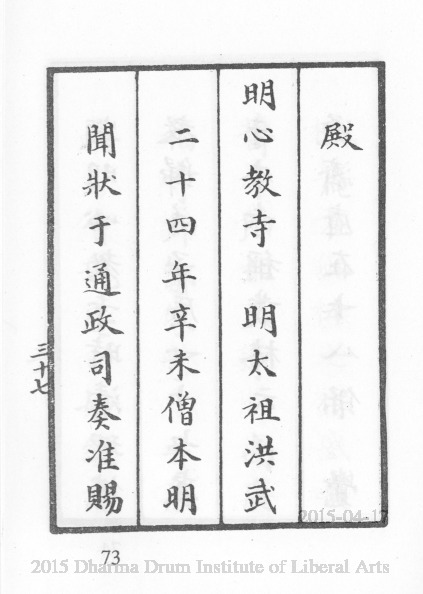 殿
明心教寺　明太祖洪武
二十四年辛未僧本明
聞狀于通政司奏准賜
三十七
2015-04-17
73
2015 Dharma Drum Institute of Liberal Arts